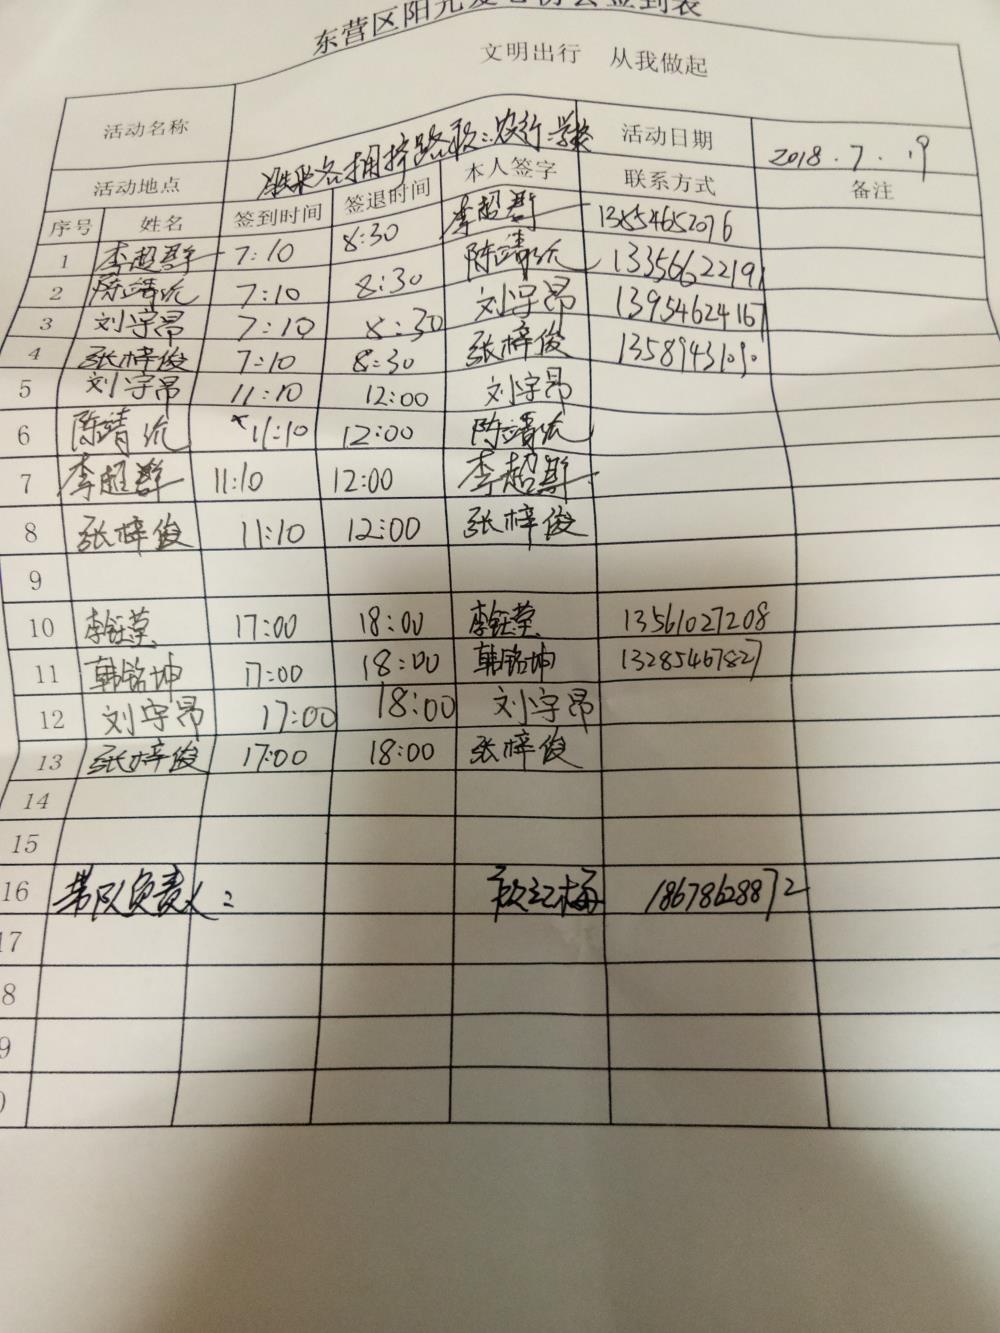 东营区阳光爱心协会签到表
文明出行 从我做起
活动名称 活动日期 2018.7.19
活动地点 胜采各拥挤路段:农行:学校
序号 姓名 签到时间 签退时间 本人签字 联系方式 备注
1 李超群 7:10 8:30 李超群 13854652076
2 陈靖沅 7:10 8:30 陈靖沅 13356622191
3 刘宇昂 7:10 8:30 刘宇昂 13954624167
4 张梓俊 7:10 8:30 张梓俊
5 刘宇昂 11:10 12:00 刘宇昂
6 陈靖沅 11:10 12:00 陈靖沅
7 李超群 11:10 12:00 李超群
8 张梓俊 11:10 12:00 张梓俊
9
10 李钰莹 17:00 18:00 李钰莹 13561027208
11 韩铭坤 17:00 18:00 韩铭坤 13285467827
12 刘宇昂 17:00 18:00 刘宇昂
13 张梓俊 17:00 18:00 张梓俊
14
15
16 带队负责人: 顾红梅 18678628872
17
8
9
0